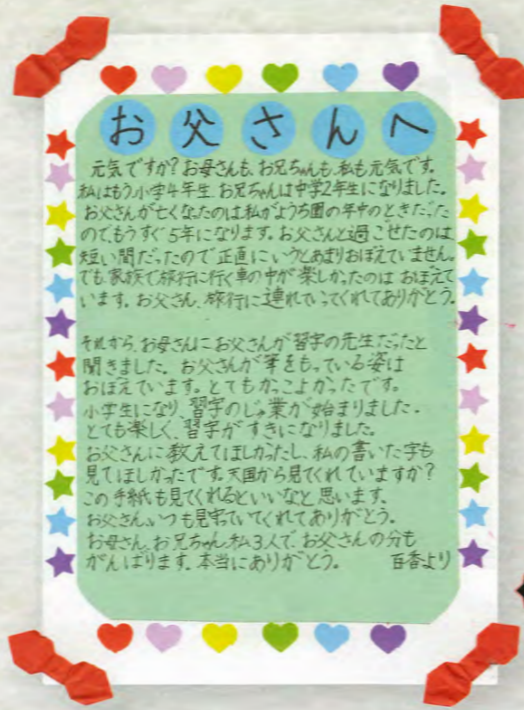 お父さんへ
元気ですか?お母さんも、お兄ちゃんも、私も元気です。
私はもう小学4年生 お兄ちゃんは中学2年生になりました。
お父さんが亡くなったのは私がようち園の年中のときだった
ので、もうすぐ5年になります。お父さんと過ごせたのは
短い間だったので正直にいうとあまりおぼえていません。
でも家族で旅行に行く車の中が楽しかったのは おぼえて
います。お父さん、旅行に連れていってくれてありがとう。
それから、お母さんにお父さんが習字の先生だったと
聞きました。お父さんが筆をもっている姿は
おぼえています。とてもかっこよかったです。
小学生になり、習字のじゅ業が始まりました。
とても楽しく、習字がすきになりました。
お父さんに教えてほしかったし、私の書いた字も
見てほしかったです。天国から見てくれていますか?
この手紙も見てくれるといいなと思います。
お父さん、いつも見守っていてくれてありがとう。
お母さん、お兄ちゃん、私3人で、お父さんの分も
がんばります。本当にありがとう。 百香より